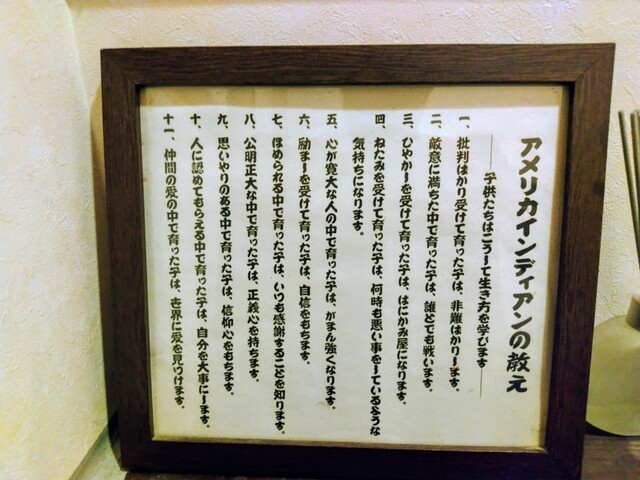 アメリカインディアンの教え
――子供たちはこうして生き方を学びます――
一、批判ばかり受けて育った子は、非難ばかりします。
二、敵意に満ちた中で育った子は、誰とでも戦います。
三、ひやかしを受けて育った子は、はにかみ屋になります。
四、ねたみを受けて育った子は、何時も悪い事をしているような
気持ちになります。
五、心が寛大な人の中で育った子は、がまん強くなります。
六、励ましを受けて育った子は、自信をもちます。
七、ほめられる中で育った子は、いつも感謝することを知ります。
八、公明正大な中で育った子は、正義心を持ちます。
九、思いやりのある中で育った子は、信仰心をもちます。
十、人に認めてもらえる中で育った子は、自分を大事にします。
十一、仲間の愛の中で育った子は、世界に愛を見つけます。